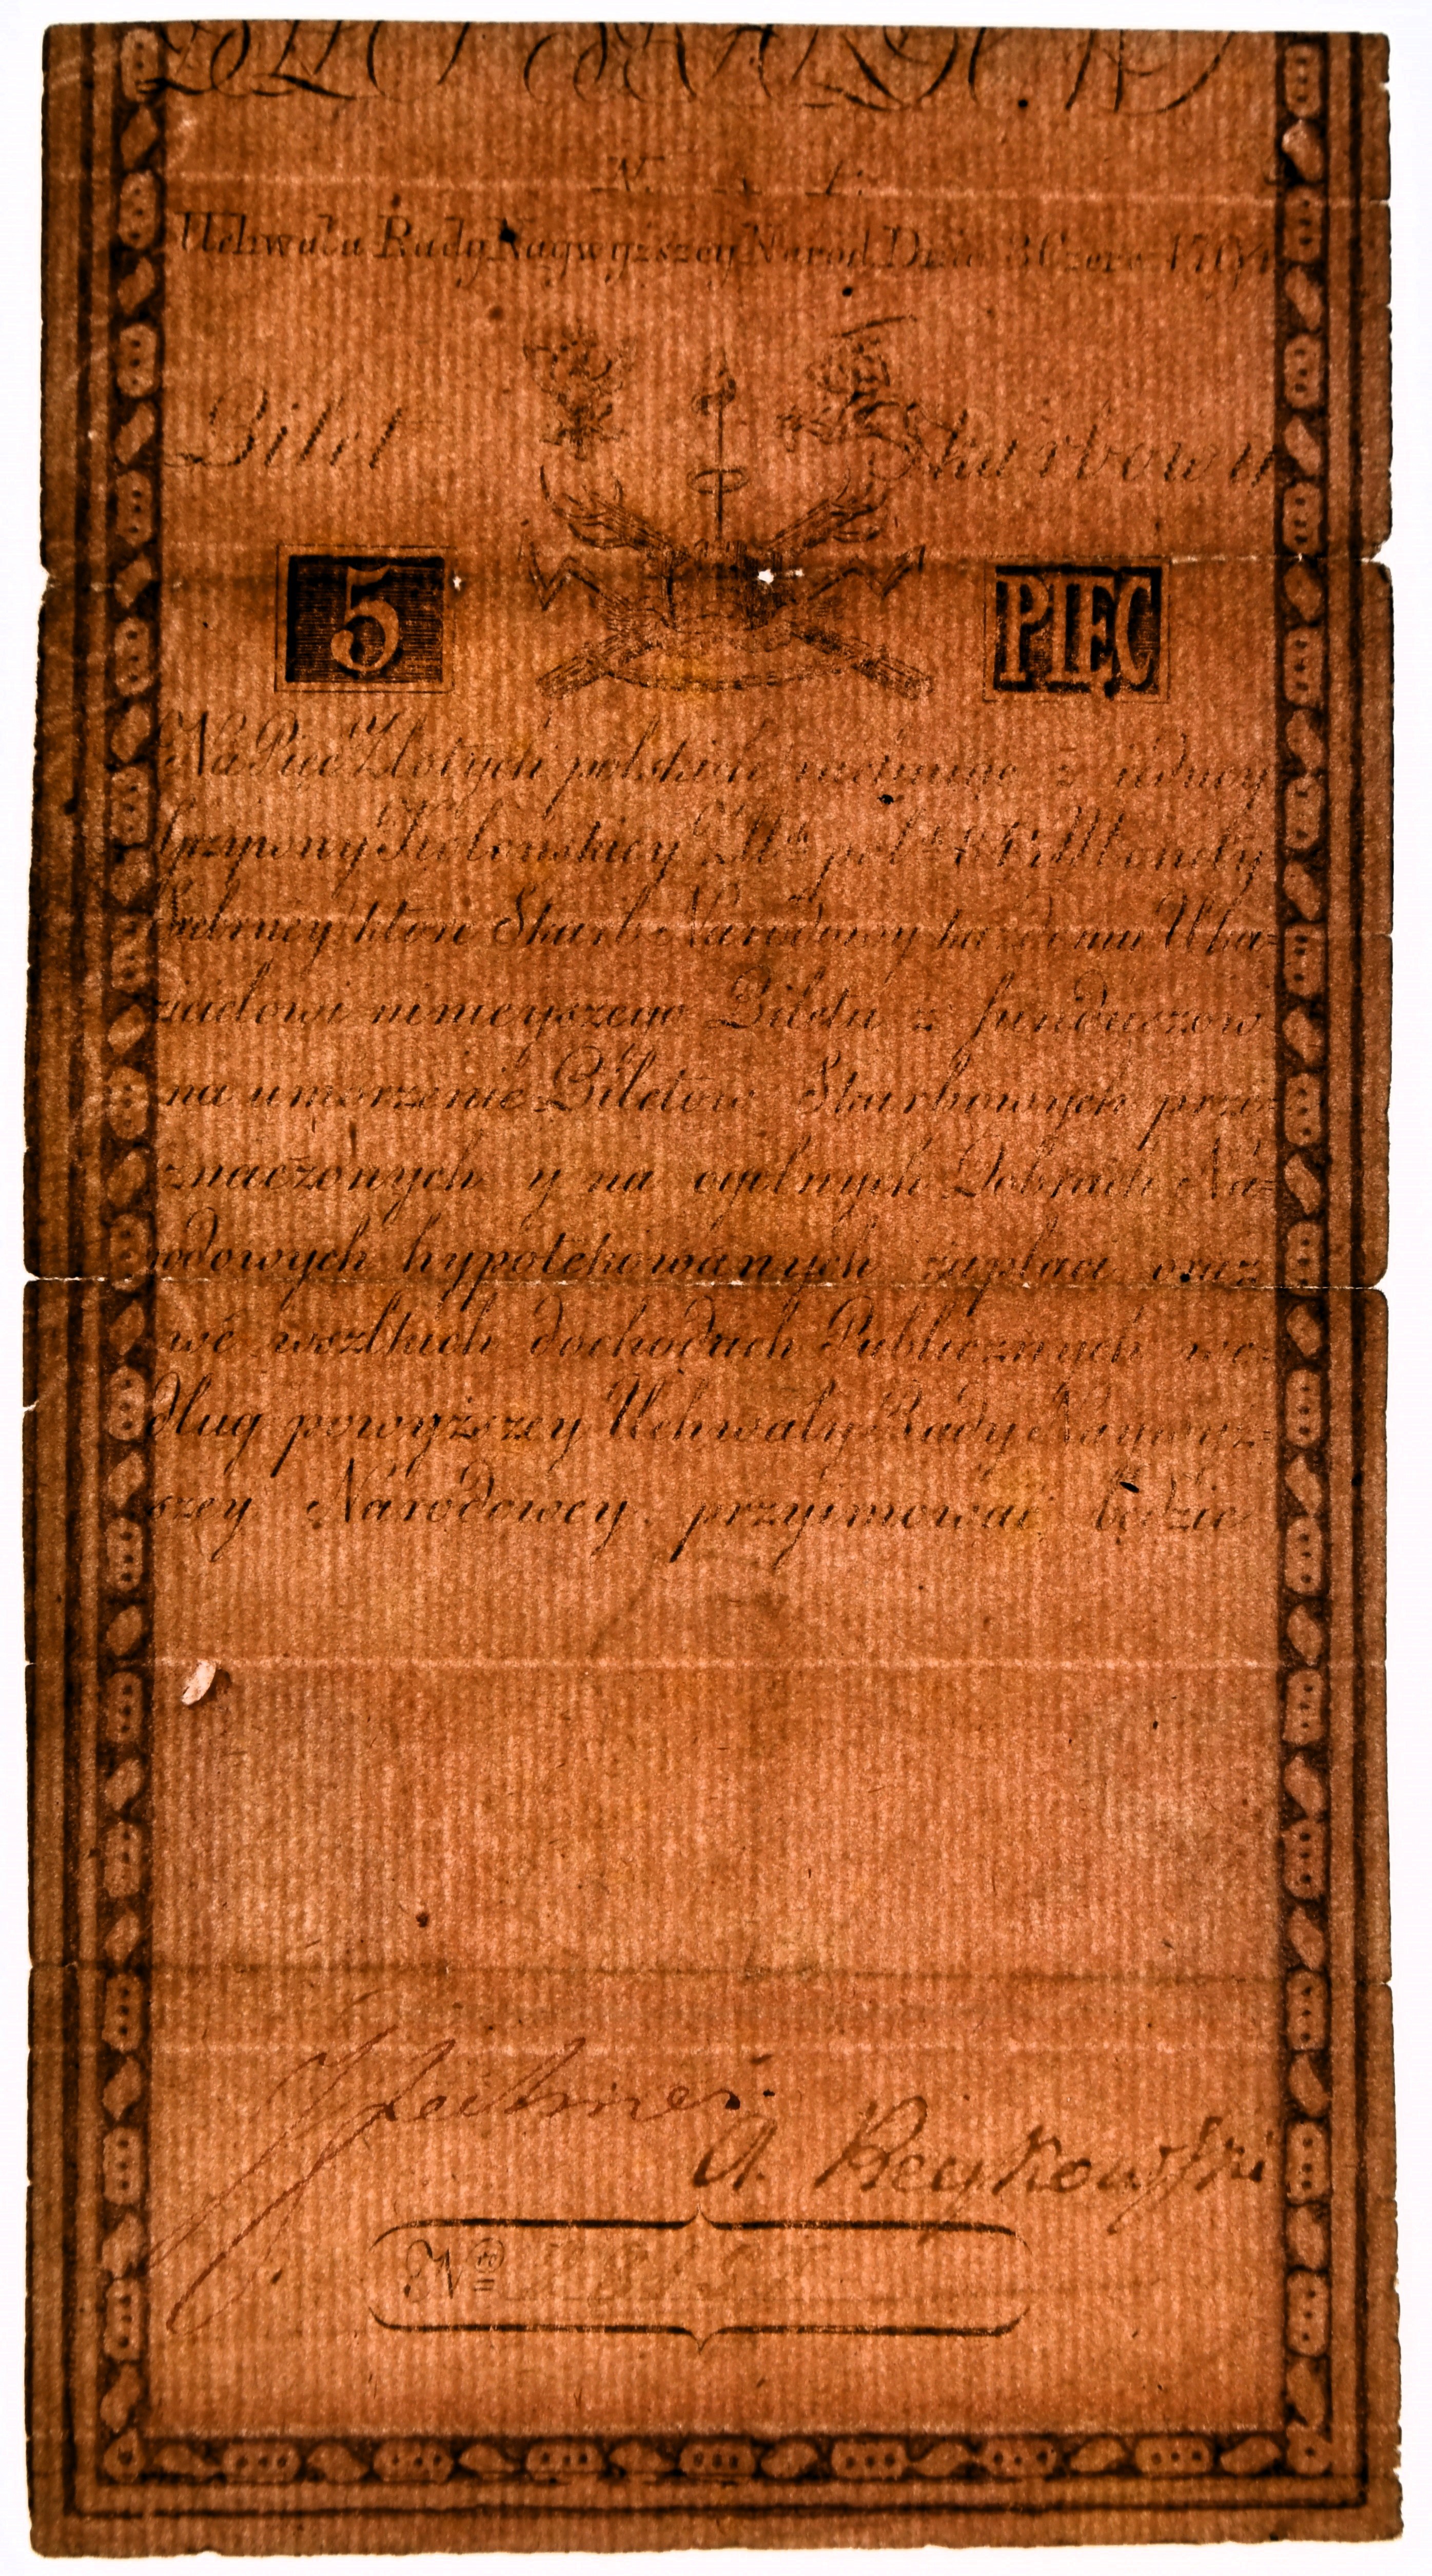 N. 1.
Uchwała Rady Naywyższey Narod. Dnia 8 Czerw. 1794
Bilet Skarbowy
5 PIĘC
Na Pięć Złotych polskich rachuiąc z iedney
Grzywny Kolońskiey Zł: pol: Monety
Srebrney które Skarb Narodowy każdemu Oka=
zicielowi ninieyszego Biletu z funduszow
na umorzenie Biletow Skarbowych prze=
znaczonych y na ogólnych Dobrach Na=
rodowych hypotekowanych zapłaci oraz
we wszelkich dochodach Publicznych we=
dług powyższey Uchwały Rady Naywyż=
szey Narodowey przyimować będzie
A. Reykowski
Nro